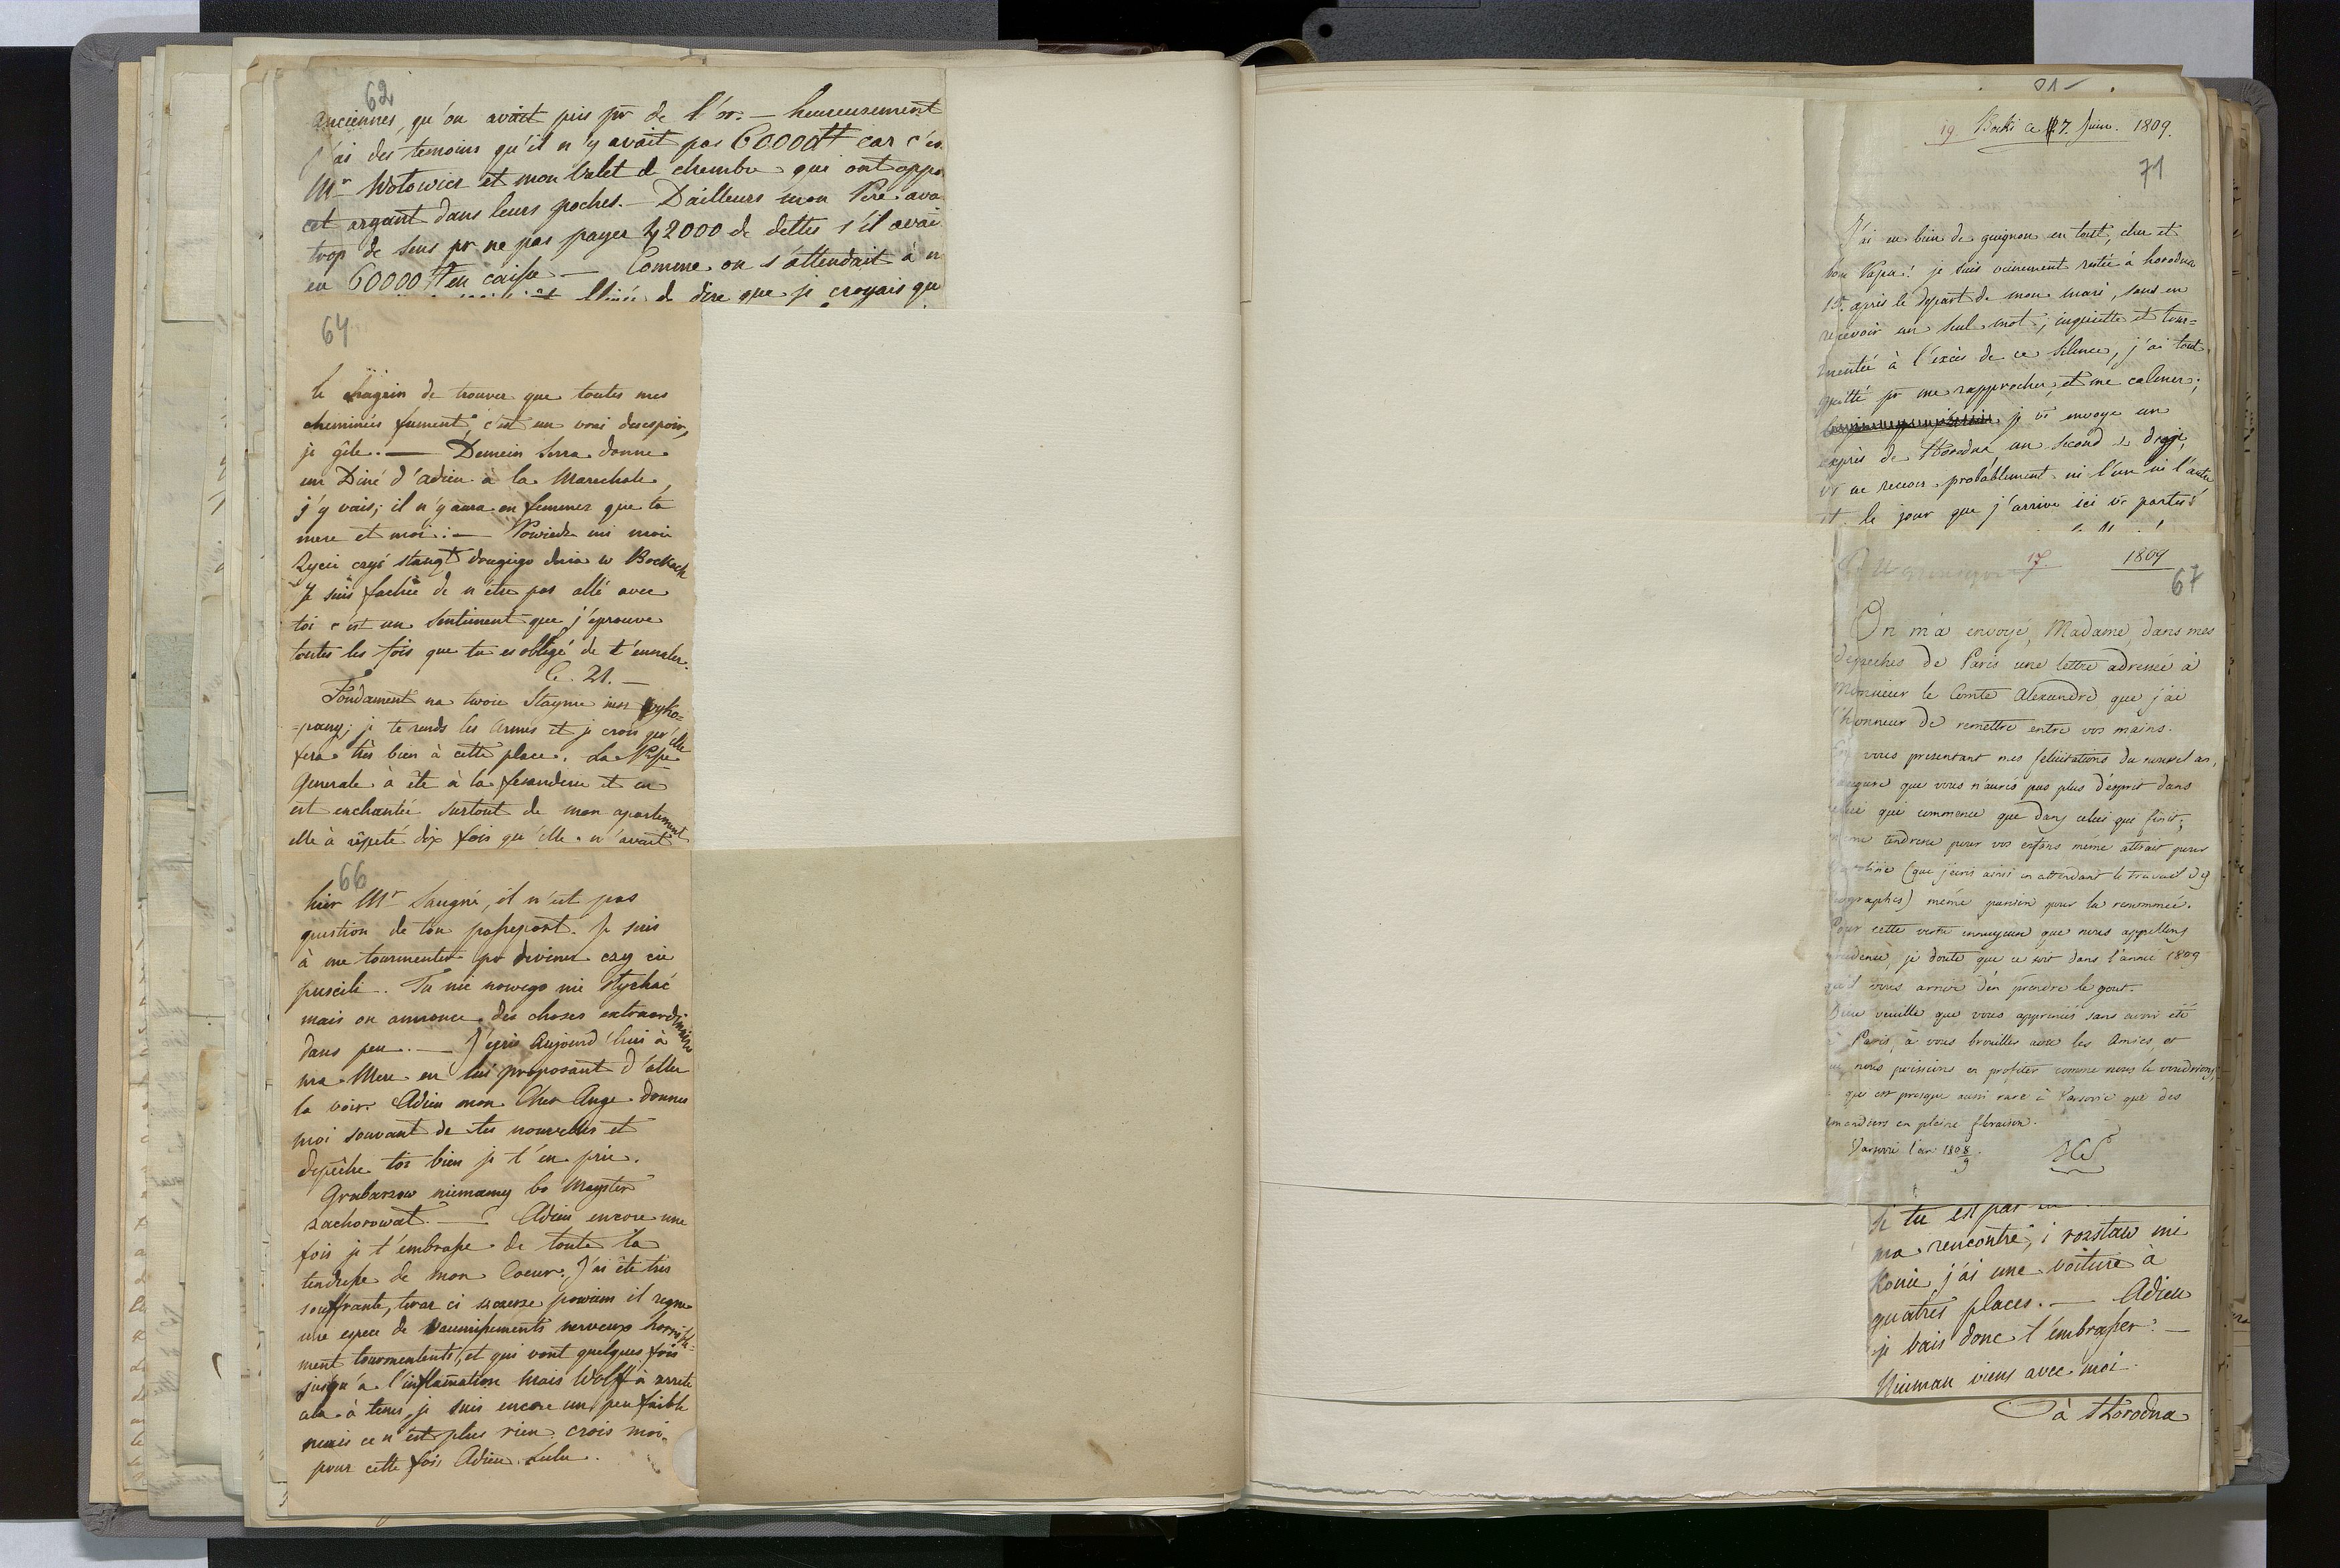 62
anciennes, qu'on avait pris pr de l'or. — heureusement
j'ai des temoins qu'il n'y avait pas 60000 # car c'es
Mr Wolowicz et mon Valet d chambre qui ont appo
cet argant dans leurs poches. — D'ailleurs mon Pere ava
trop de sens pr ne pas payer 42000 de dettes s'il avai
eu 60000 # en caisse — Comme on s'attendait à
de dire que je croyais qu
64
le chagrin de trouver que toutes mes
cheminées fument, c'est un vrai desespoir,
je gêle. — Demain Serra donne
un Diné d'adieu à la Marechale,
j'y vais; il n'y aura en femmes que ta
mere et moi. — Powiedz mi moie
życie czyś stanął drugiego dnia w Bockach
Je suis fachée de n'être pas allé avec
toi c'est un sentiment que j'eprouve
toutes les fois que tu es obligé de t'en aler.
Ce 21. —
Fondament na twoie Staynie iusz wyko=
=pany; je te rends les armes et je crois qu'elle
fera très bien à cette place. La Psse
Generale à été à la fesanderie et en
est enchantée surtout de mon apartement
elle à répeté dix fois qu'elle n'avait
66
hier Mr Saugné, il n'est pas
question de ton passeport. Je suis
à me tourmenter pr deviner czy cie
puscili. Tu nic nowego nie słychać
mais on annonce des choses extraordinaires
dans peu. — J'ecris Aujourd'hui à
ma Mere en lui proposant d'aller
la voir. Adieu mon Cher Ange donnes
moi souvant de tes nouvelles et
depêche toi bien je t'en prie.
Grabarzow niemamy bo Mayster
zachorował. — Adieu encore une
fois je t'embrasse de toute la
tendresse de mon Coeur. J'ai été très
souffrante, teraz ci szczerze powiem il regne
une espece de Vaumissements nerveux horrible=
ment tourmentents, et qui vont quelques fois
jusqu'a l'inflamation mais Wolff à arreté
cela à tems, je suis encore un peu faible
mais ce n'est plus rien crois moi.
pour cette fois Adieu. Lulu.
19. Bocki ce 7. Juin. 1809.
71
J'ai eu bien de guignon en tout, cher et
bon Papa! je suis vainement restée à horodna
15. après le depart de mon mari, sans en
recevoir un seul mot; inquiette et tour=
mentée à l'excès de ce silence, j'ai tout
quitté pr me rapprocher, et me calmer;
je vs envoye un
exprès de Horodna un second
vs ne recevez probablement ni l'un ni l'autre
et le jour que j'arrive ici vs partés
17. 1809
67
On m'a envoyé, Madame, dans mes
depeches de Paris une lettre adressée à
Monsieur le Comte Alexandre que j'ai
l'honneur de remettre entre vos mains.
En vous presentant mes felicitations du nouvel an,
j'augure que vous n'aurés pas plus d'esprit dans
celui qui commence que dans celui qui finit;
même tendresse pour vos enfans même attrait pour
(que j'ecris ainsi en attendant le travail des
ographes) même passion pour la renommée.
Pour cette vertu ennuyeuse que nous appellons
prudence, je doute que ce soit dans l'année 1809
qu'il vous arrive d'en prendre le gout.
Dieu veuille que vous appreniés sans avoir été
à Paris, à vous brouiller avec les Amies et
que nous puissions en profiter comme nous le voudrions,
qui est presque aussi rare à Varsovie que des
amandiers en pleine floraison.
Varsovie l'an 1808/9.
si tu est par
ma rencontre, i rozstaw mi
konie j'ai une voiture à
quatres places. — Adieu
je vais donc t'embrasser. —
Nieman viens avec moi.
à Horodna